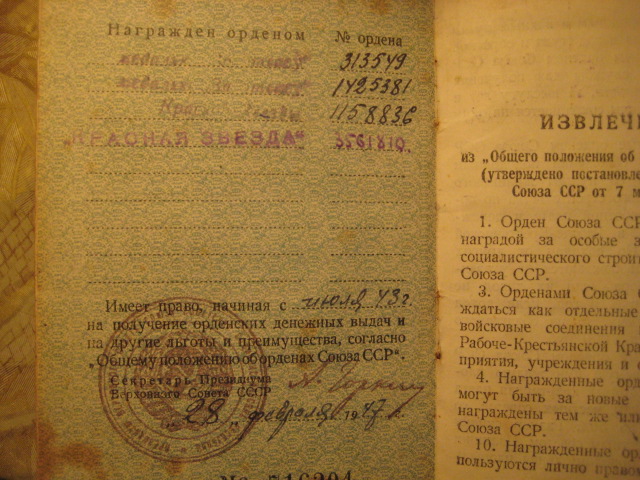 Награжден орденом № ордена
313549
1425381
1158836
„КРАСНАЯ ЗВЕЗДА“
Имеет право, начиная с июля 43 г.
на получение орденских денежных выдач и
на другие льготы и преимущества, согласно
„Общему положению об орденах Союза ССР“.
Секретарь Президиума
Верховного Совета СССР
А. Горкин
„28“ февраля 1947 г.
ИЗВЛЕЧЕ
из „Общего положения об
(утверждено постановле
Союза ССР от 7 м
1. Орден Союза ССР
наградой за особые з
социалистического строи
Союза ССР.
3. Орденами Союза
ждаться как отдельные
войсковые соединения
Рабоче-Крестьянской Кра
приятия, учреждения и о
4. Награжденные орд
могут быть за новые
награждены тем же или
Союза ССР.
10. Награжденные ор
пользуются лично правом